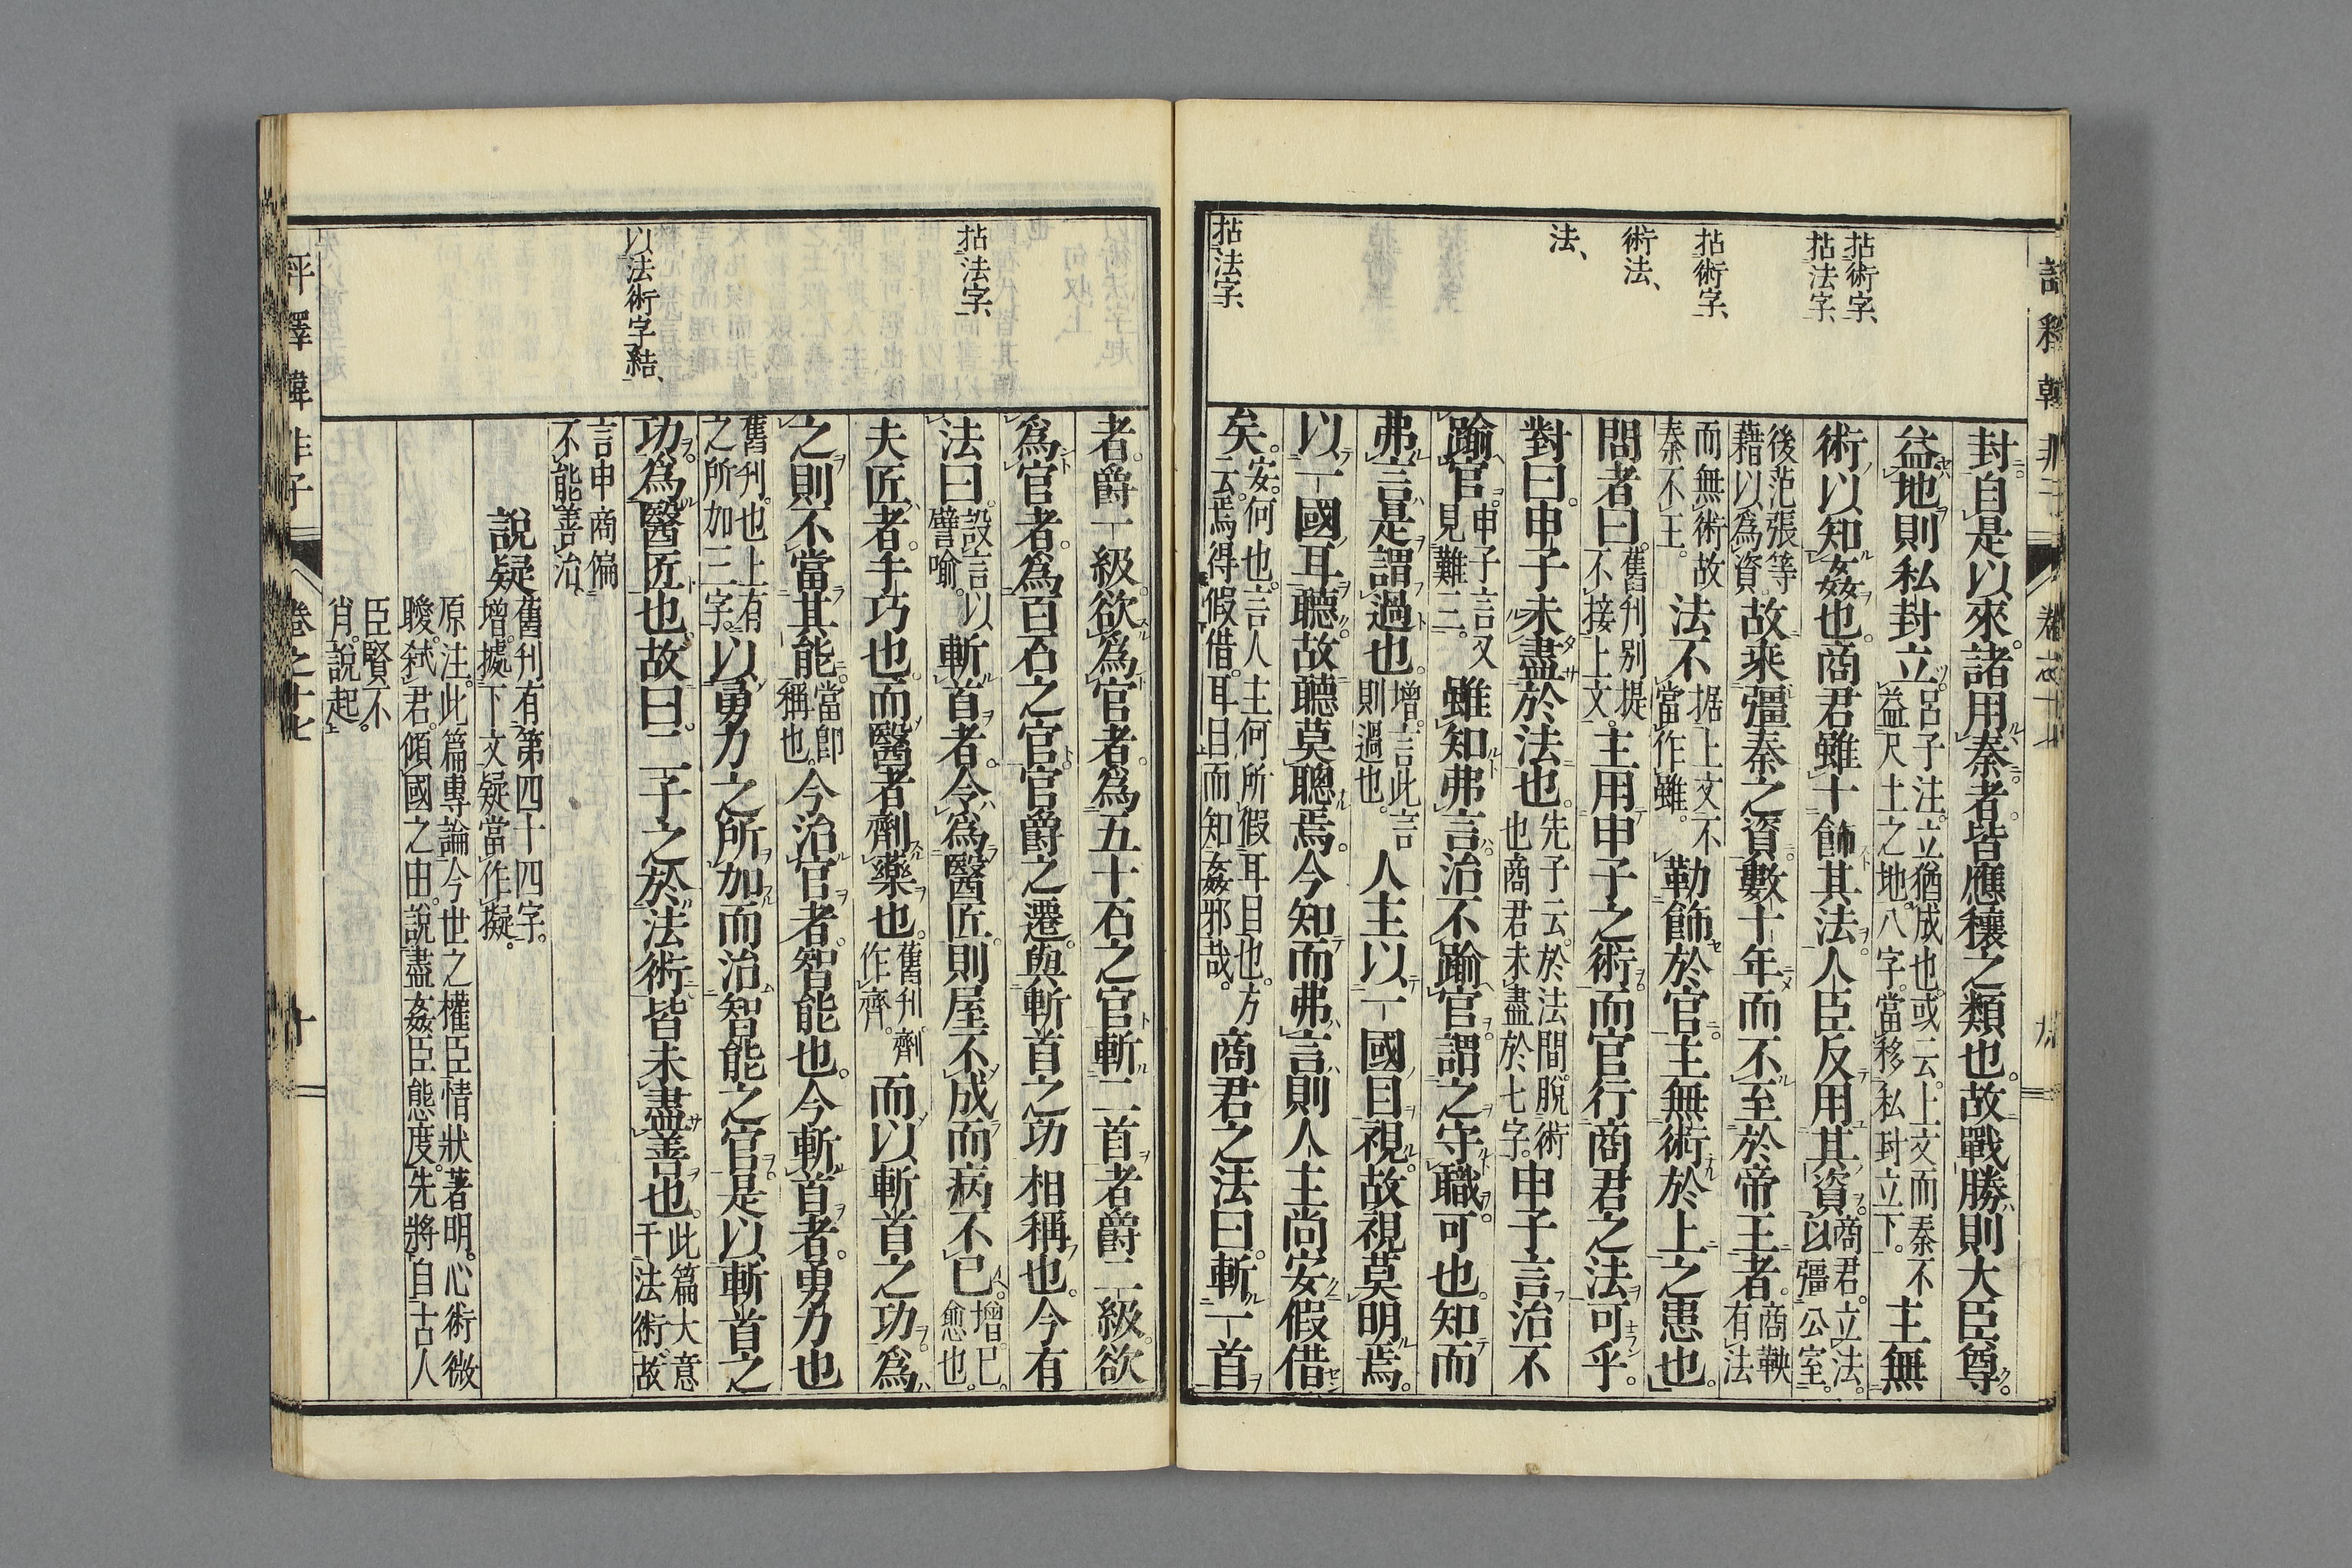 拈術字、
拈法字、
拈術字、
術法、
法、
拈法字、
封。自是以來。諸用秦者。皆應穰之類也。故戰勝則大臣尊。
益地則私封立。呂子注。立猶成也。或云。上文而秦不益尺土之地。八字。當移私封立下。主無
術以知姦也。商君雖十飾其法。人臣反用其資。商君。立法。以彊公室。
後范張等藉以爲資。故乘彊秦之資。數十年而不至於帝王者。商鞅有法
而無術故秦不王。法不據上文不當作雖。勤飾於官。主無術於上之患也。
問者曰。舊刊別提不接上文。主用申子之術。而官行商君之法。可乎。
對曰。申子未盡於法也。先子云。於法間。脫術也商君未盡於七字。申子言治不
踰官。申子言又見難三。雖知弗言。治不踰官。謂之守職可也。知而
弗言。是謂過也。增。言此言則過也。人主以一國目視。故視莫明焉。
以一國耳聽。故聽莫聰焉。今知而弗言。則人主尚安假借
矣。安。何也。言人主何所假耳目也。方云。焉得假借。耳目而知姦邪哉。商君之法曰。斬一首
評釋韓非子 卷之十七 九
拈法字、
以法術字結、
者。爵一級。欲爲官者。爲五十石之官。斬二首者爵二級。欲
爲官者。爲百石之官。官爵之遷。與斬首之功相稱也。今有
法曰。設言以譬喻。斬首者。令爲醫匠。則屋不成而病不已。增。已。愈也。
夫匠者。手巧也。而醫者劑藥也。舊刊。劑作齊。而以斬首之功。爲
之則不當其能。當卽稱也。今治官者。智能也。今斬首者。勇力也
舊刊。也上有之所加三字。以勇力之所加。而治智能之官。是以斬首之
功。爲醫匠也。故曰。二子之於法術。皆未盡善也。此篇大意干法術。故
言申商偏不能善治、
說疑舊刊有第四十四字。增。據下文疑當作擬。
原注。此篇專論今世之權臣情狀著明。心術微曖。弑君。傾國之由。說盡姦臣態度。先將自古人
臣賢不肖。說起。
評釋韓非子 卷之十七 十